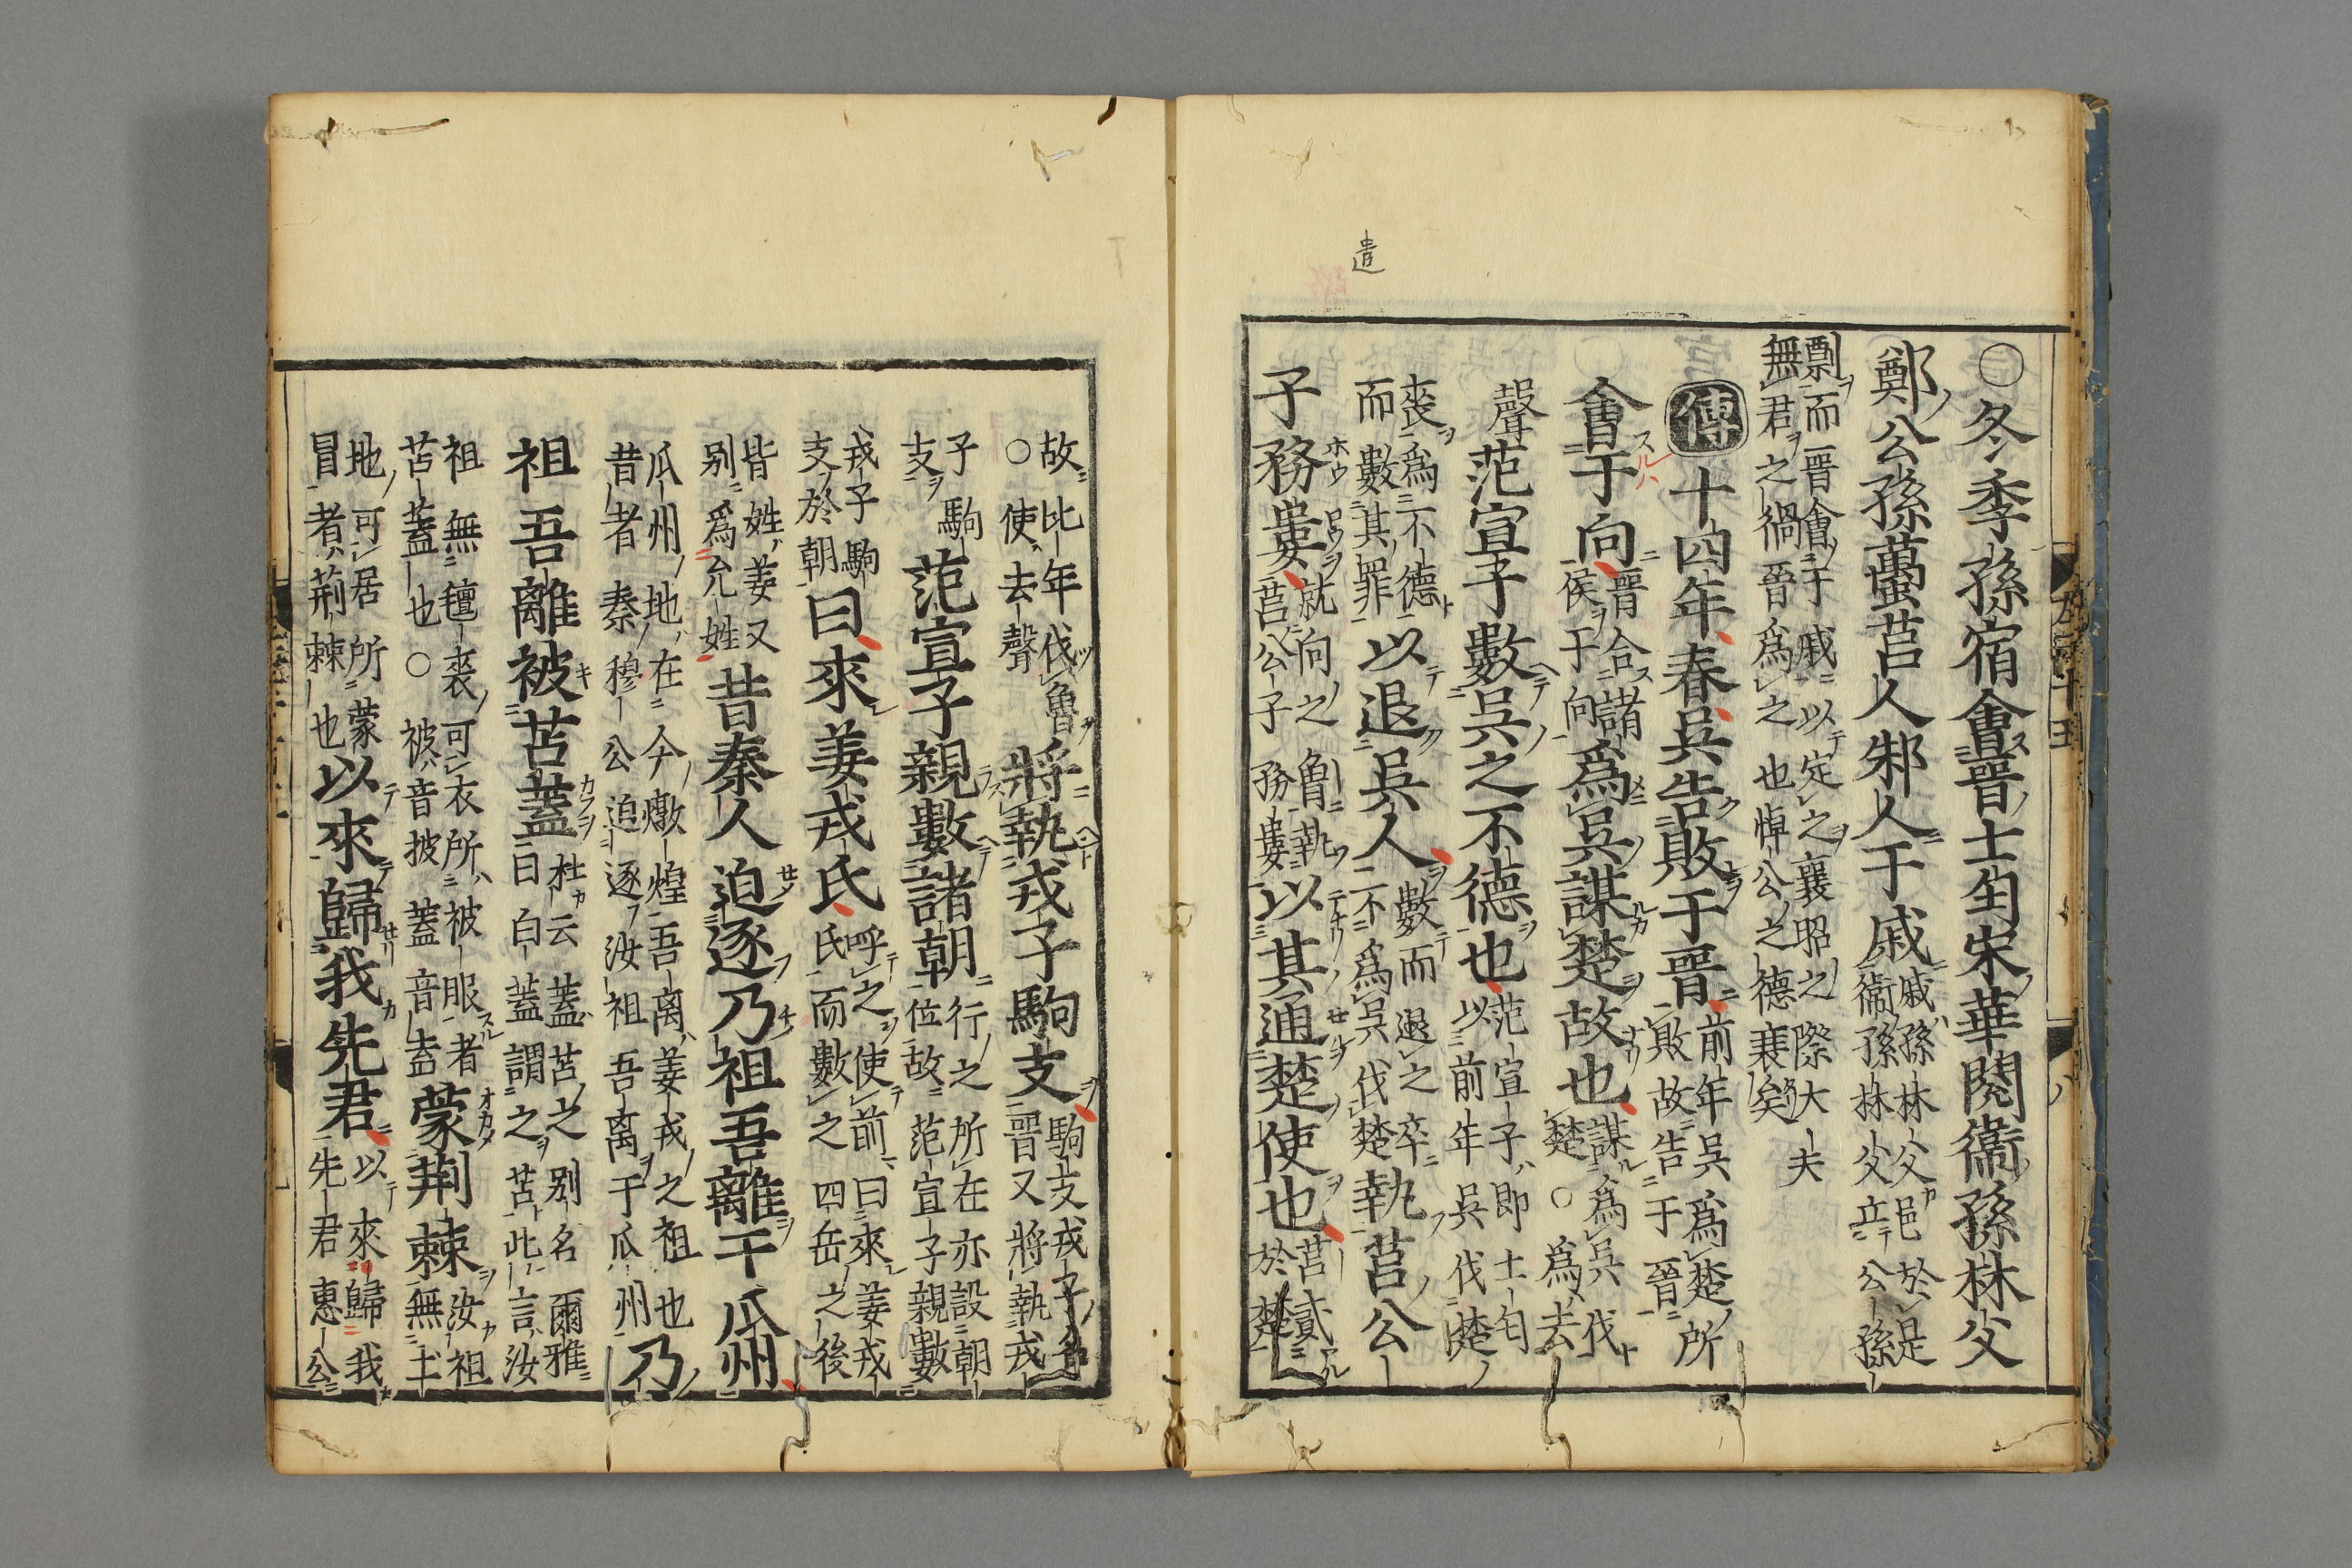 遣
○冬季孫宿會晉士匄宋華閱衞孫林父
鄭公孫蠆莒人邾人于戚戚孫林父邑於是衞孫林父立公孫
剽而晉會于戚以定之襄昭之際大夫無君之禍晉爲之也悼公之德衰矣
傳十四年春吳告敗于晉前年吳爲楚所敗故告于晉
會于向晉合諸侯于向爲吳謀楚故也謀爲吳伐楚○爲去
聲范宣子數吳之不德也范宣子即士匄以前年吳伐楚
喪爲不德而數其罪以退吳人數而退之卒不爲吳伐楚執莒公
子務婁就向之魯執莒公子務婁以其通楚使也莒貳於楚
故比年伐魯○使去聲將執戎子駒支駒支戎子名晉又將執戎
子駒支范宣子親數諸朝行之所在亦設朝位故范宣子親數
戎子駒支於朝曰來姜戎氏呼之使前曰來姜戎氏而數之四岳之後
皆姓姜又別爲允姓昔秦人迫逐乃祖吾離于瓜州
瓜州地在今燉煌吾离姜戎之祖也昔者秦穆公迫逐汝祖吾离于瓜州乃
祖吾離被苫蓋杜云蓋苫之別名爾雅曰白蓋謂之苫此言汝
祖無氊裘可衣所被服者苫蓋也○被音披蓋音盍蒙荆棘汝祖無土
地可居所蒙冒者荆棘也以來歸我先君以來歸我先君惠公